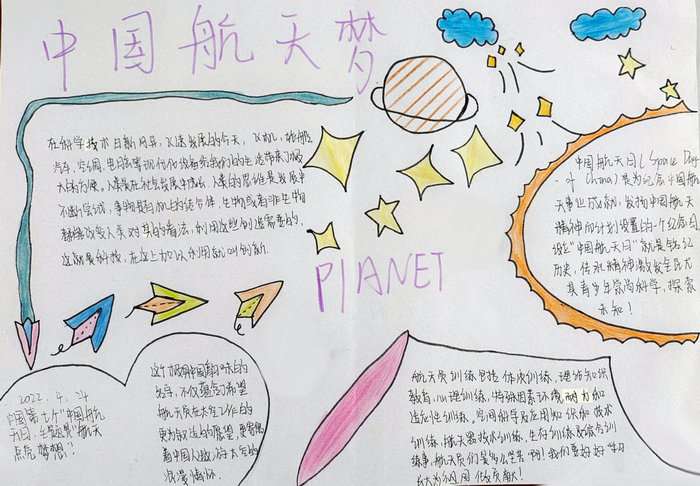 中国航天梦
在科学技术日新月异，飞速发展的今天，飞机，轮船
汽车，空调，电话等现代化设备
人类在社会发展中
不断尝试，事物是有机的结合体，生物或者非生物
改变人类对其的看法，利用这些创造需要的，
这就是科技，在这上加以利用就叫创新.
PIANET
中国航天日（Space Day
of China）是为纪念中国航
天事业成就，发扬中国航天
精神而计划设置的一个纪念日
设立“中国航天日”就是铭记
历史，传承精神激发全民尤
其青少年崇尚科学，探索
未知！
2022.4.24
中国第七个“中国航
天日，主题是“航天
点亮梦想！”
这个极有中国韵味的
名字，不仅蕴含了希望
航天员在太空工作的
更为舒适的愿望，更寄托
着中国人致以太空的
浪漫情怀.
航天员训练包括体质训练，理论知识
教育，心理训练，特殊因素环境耐力和
适应性训练，空间科学及应用知识和技术
训练，航天器技术训练，生存训练及综合训
练等，航天员们是多么坚苦啊！我们要好好学习
长大为祖国做贡献！